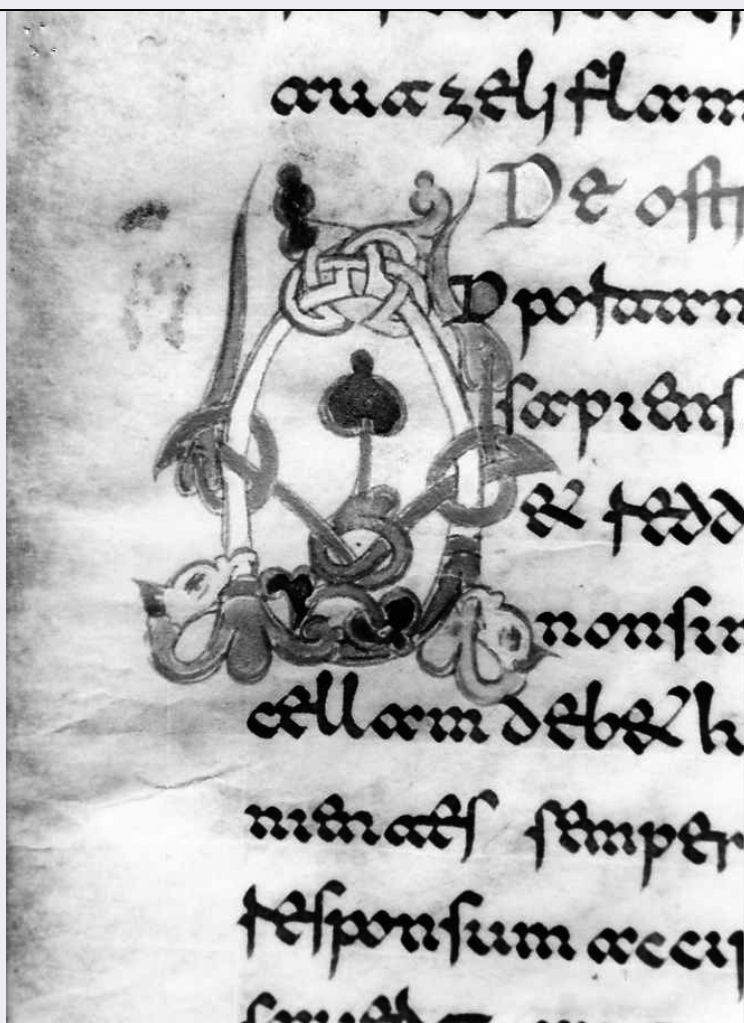 aua zeli flam
De osti
AD portam
sapiens
& redd
non sin
cellam debe& h
nientes semper
responsum acci